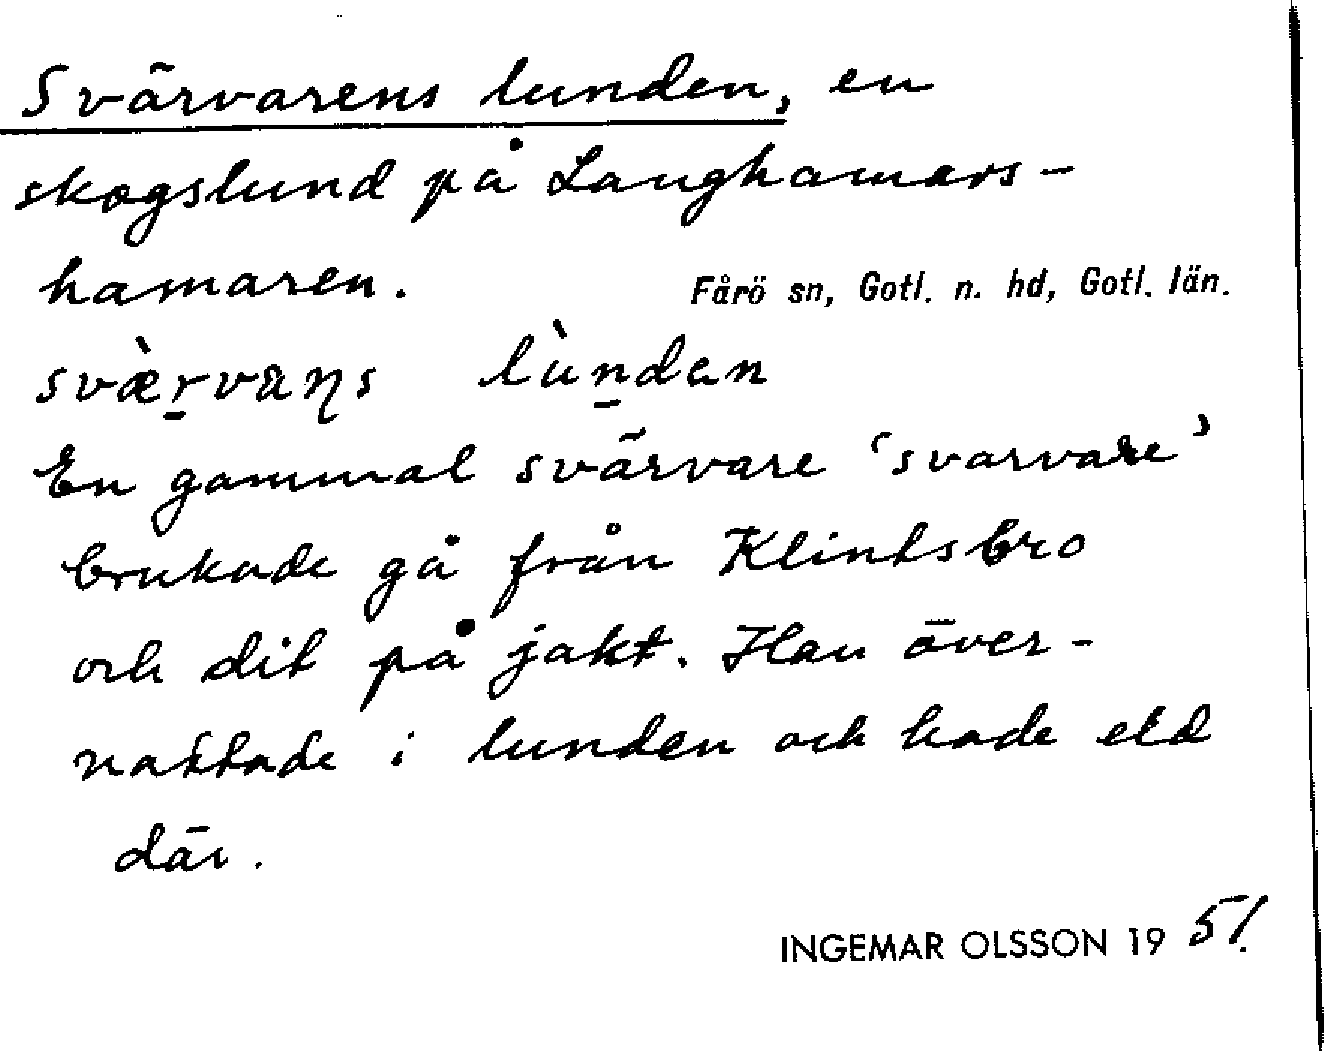 Svärvarens lunden, en
skogslund på Langhamars-
hamaren.
Fårö sn, Gotl. n. hd, Gotl. län.
svæ̀r̠vaŋs lùn̠dan
En gammal svärvare 'svarvare'
brukade gå från Klintsbro
och dit på jakt. Han över-
nattade i lunden och hade eld
där.
INGEMAR OLSSON 1951.